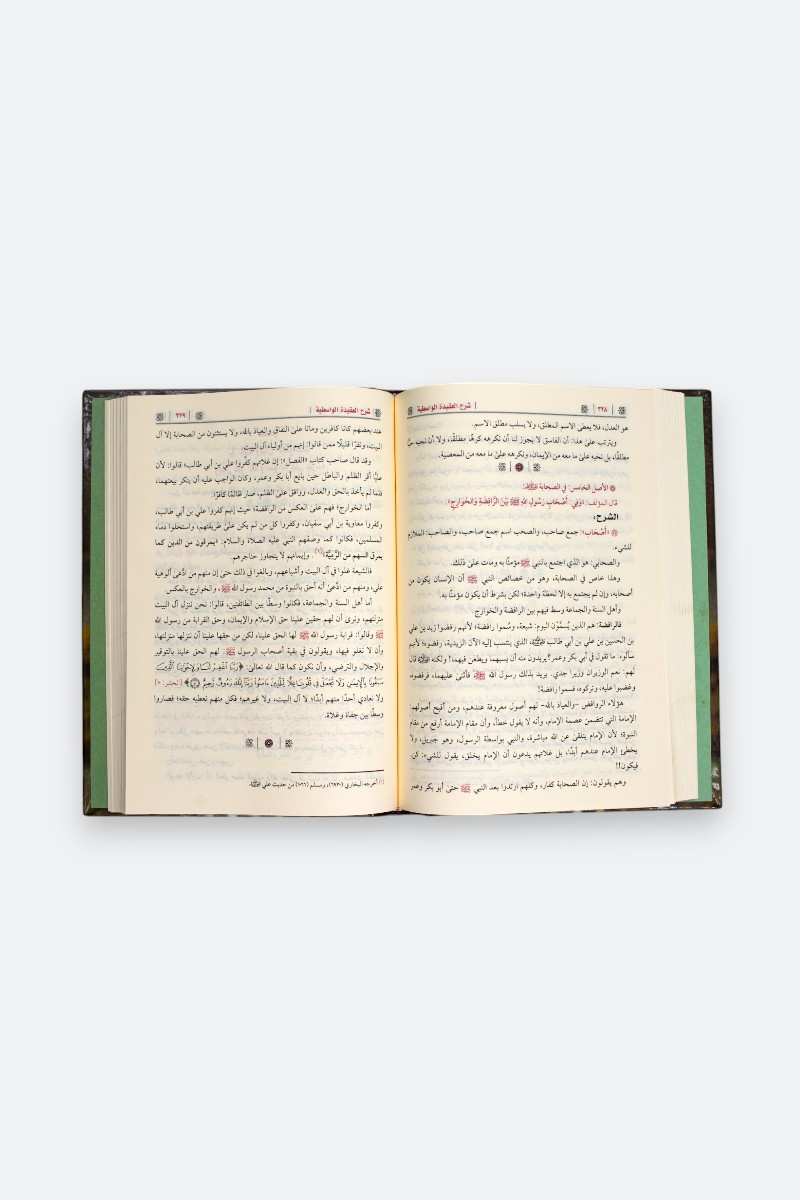 ٣٢٨
شرح العقيدة الواسطية
هو العدل، فلا يعطى الاسم المطلق، ولا يسلب مطلق الاسم.
ويترتب على هذا: أن الفاسق لا يجوز لنا أن نكرهه كرهًا مطلقًا، ولا أن نحبه حبًّا
مطلقًا، بل نحبه على ما معه من الإيمان، ونكرهه على ما معه من المعصية.
الأصل الخامس: في الصحابة
قال المؤلف: «وفِي أَصْحَابِ رَسُولِ اللهِ ﷺ بَيْنَ الرَّافِضَةِ وَالخَوَارِجِ».
الشرح:
«أَصْحَاب»: جمع صاحب، والصحب اسم جمع صاحب، والصاحب: الملازم
للشيء.
والصحابي: هو الذي اجتمع بالنبي ﷺ مؤمنًا به ومات على ذلك.
وهذا خاص في الصحابة، وهو من خصائص النبي ﷺ أن الإنسان يكون من
أصحابه، وإن لم يجتمع به إلا لحظة واحدة؛ لكن بشرط أن يكون مؤمنًا به.
وأهل السنة والجماعة وسط فيهم بين الرافضة والخوارج.
فالرافضة: هم الذين يُسمَّوْن اليوم: شيعة، وسُموا رافضة؛ لأنهم رفضوا زيد بن علي
بن الحسين بن علي بن أبي طالب، الذي ينتسب إليه الآن الزيدية، رفضوه؛ لأنهم
سألوه: ما تقول في أبي بكر وعمر؟ يريدون منه أن يسبهما ويطعن فيهما! ولكنه قال
لهم: نعم الوزيران وزيرا جدي. يريد بذلك رسول الله ﷺ، فأثنى عليهما، فرفضوه،
وغضبوا عليه، وتركوه، فسموا رافضة!
هؤلاء الروافض -والعياذ بالله- لهم أصول معروفة عندهم، ومن أقبح أصولهم:
الإمامة التي تتضمن عصمة الإمام، وأنه لا يقول خطأ، وأن مقام الإمامة أرفع من مقام
النبوة؛ لأن الإمام يتلقى عن الله مباشرة، والنبي بواسطة الرسول، وهو جبريل، ولا
يخطئ الإمام عندهم أبدًا، بل غلاتهم يدعون أن الإمام يخلق، يقول للشيء: كن.
فيكون!!
وهم يقولون: إن الصحابة كفار، وكلهم ارتدوا بعد النبي ﷺ حتى أبو بكر وعمر
شرح العقيدة الواسطية
٣٢٩
عند بعضهم كانا كافرين وماتا على النفاق والعياذ بالله، ولا يستثنون من الصحابة إلا آل
البيت، ونفرًا قليلًا ممن قالوا: إنهم من أولياء آل البيت.
وقد قال صاحب كتاب «الفصل»: إن غلاتهم كفَّروا علي بن أبي طالب؛ قالوا: لأن
عليًّا أقر الظلم والباطل حين بايع أبا بكر وعمر، وكان الواجب عليه أن ينكر بيعتهما،
فلما لم يأخذ بالحق والعدل، ووافق على الظلم، صار ظالمًا كافرًا.
أما الخوارج؛ فهم على العكس من الرافضة؛ حيث إنهم كفروا علي بن أبي طالب،
وكفروا معاوية بن أبي سفيان، وكفروا كل من لم يكن على طريقتهم، واستحلوا دماء
المسلمين، فكانوا كما وصفهم النبي عليه الصلاة والسلام: «يمرقون من الدين كما
يمرق السهم من الرَّمِيَّة»(١)، وإيمانهم لا يتجاوز حناجرهم.
فالشيعة غلوا في آل البيت وأشياعهم، وبالغوا في ذلك حتى إن منهم من ادَّعى ألوهية
علي، ومنهم من ادَّعى أنه أحق بالنبوة من محمد رسول الله ﷺ، والخوارج بالعكس.
أما أهل السنة والجماعة، فكانوا وسطًا بين الطائفتين، قالوا: نحن ننزل آل البيت
منزلتهم، ونرى أن لهم حقين علينا حق الإسلام والإيمان، وحق القرابة من رسول الله
ﷺ وقالوا: قرابة رسول الله ﷺ لها الحق علينا، لكن من حقها علينا أن ننزلها منزلتها،
وأن لا نغلو فيها، ويقولون في بقية أصحاب الرسول ﷺ: لهم الحق علينا بالتوقير
والإجلال والترضي، وأن نكون كما قال الله تعالى: ﴿رَبَّنَا اغْفِرْ لَنَا وَلِإِخْوَانِنَا الَّذِينَ
سَبَقُونَا بِالْإِيمَانِ وَلَا تَجْعَلْ فِي قُلُوبِنَا غِلًّا لِلَّذِينَ ءَامَنُوا رَبَّنَا إِنَّكَ رَءُوفٌ رَحِيمٌ ۝﴾ [الحشر: ١٠]
ولا نعادي أحدًا منهم أبدًا؛ لا آل البيت، ولا غيرهم؛ فكل منهم نعطيه حقه؛ فصاروا
وسطًا بين جفاة وغلاة.
(١) أخرجه البخاري، ومسلم (١٠٦٦) من حديث علي